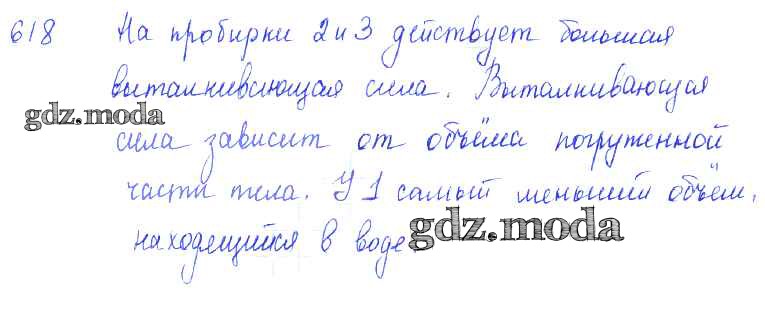 618 На пробирки 2 и 3 действует большая
выталкивающая сила. Выталкивающая
gdz.moda
сила зависит от объёма погруженной
части тела. У 1 самый меньший объём,
находящийся в воде.
gdz.moda